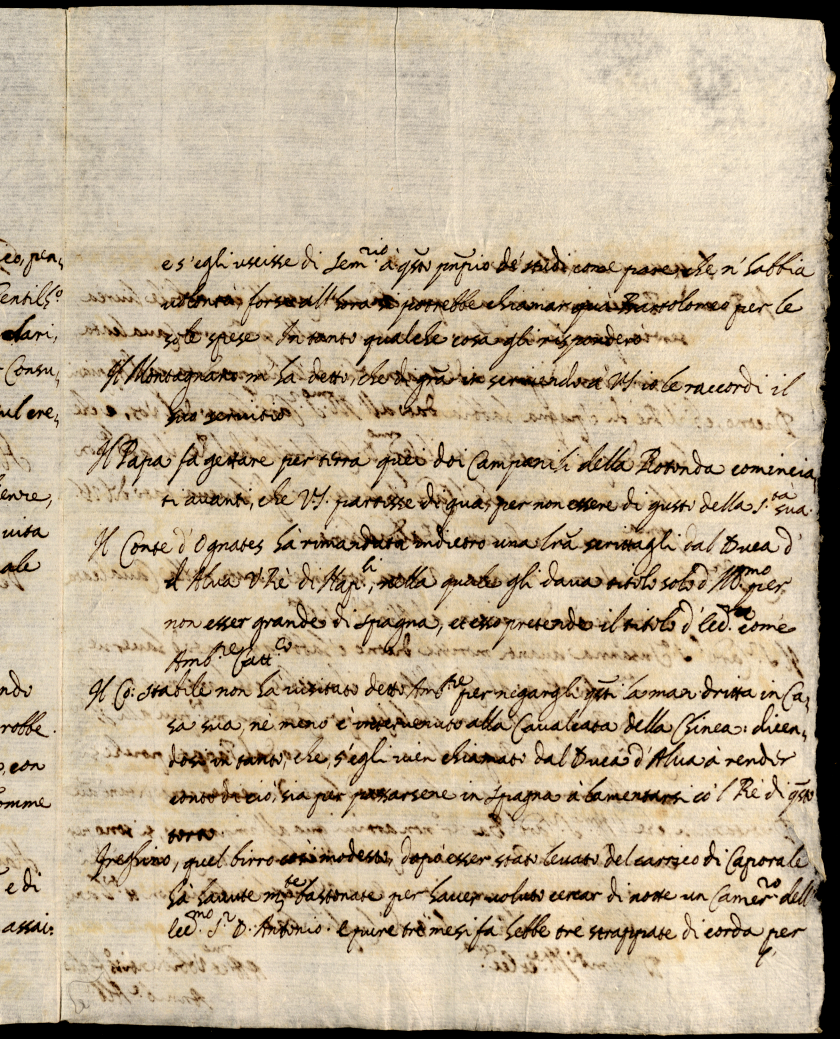 e s'egli uscisse di Sem.rio à q̃sto pñpio de' studi come pare, che n'habbia
volontà forse all'hora si potrebbe chiamar quà Bartolomeo per le
sole spese. In tanto qualche cosa gli risponderò
Il Montagnano m'ha detto, che di gr̃a in scrivendo à V.S. io le raccordi il
suo servitio
Il Papa fà gettare per terra quei doi Campanili della Rotonda comincia
ti avanti, che V.S. partisse di quà, per non essere di gusto della S.tà sua.
Il Conte d'Ognates hà rimandata indietro una lr̃a scrittagli dal Duca d'
d'Alva V.Rè di Nap.li, nella quale gli dava titolo solo d'Ill.mo per
non esser grande di Spagna, et esso pretende il titolo d'Ecc.za come
Amb.re Catt.co
Il Cõ: stabile non hà visitato detto Amb.re per negargli q̃sti la man dritta in Ca,
sa sua, nè meno è intervenuto alla Cavalcata della Chinea: dicen,
dosi in tanto, che, s'egli vien chiamato dal Duca d'Alva à render
conto di ciò, sia per passarsene in Spagna à lamentarsi cõ'l Rè di q̃sto
torto
Greghino, quel birro così modesto, dopò esser stato levato del carrico di Caporale
hà havute m.te bastonate per haver voluto cercar di notte un Camer.ro dell'
Ecc.mo S.r D. Antonio. E pure tre mesi fa hebbe tre strappate di corda per
eo, pen,
Gentilh.o
dari,
Consu,
sul cre,
vita
ale
ndo
robbe.
con
omme
e di
assai: